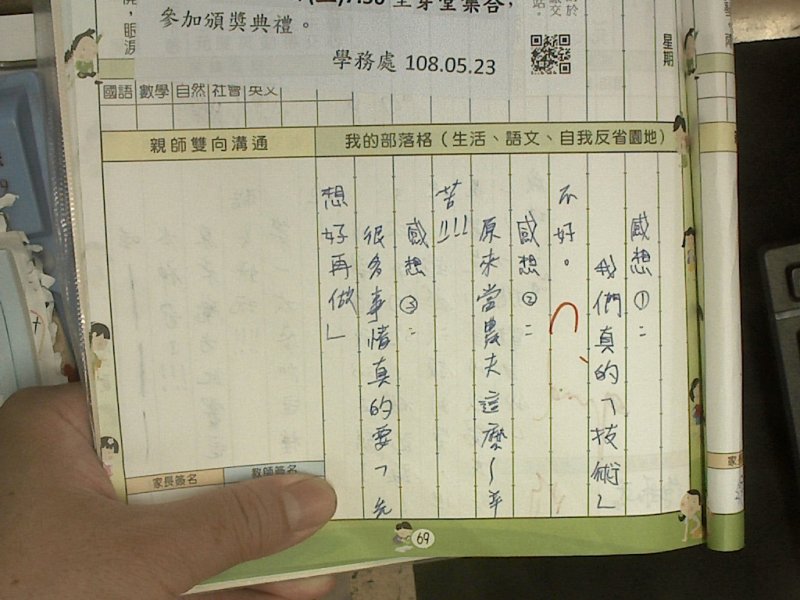 參加頒獎典禮。
學務處 108.05.23
星期
國語 數學 自然 社會 英文
親師雙向溝通
我的部落格（生活、語文、自我反省園地）
感想①：
我們真的「技術」
不好。
感想②：
原來當農夫這麼～辛
苦!!!
感想③：
很多事情真的要「先
想好再做」
家長簽名
教師簽名
69